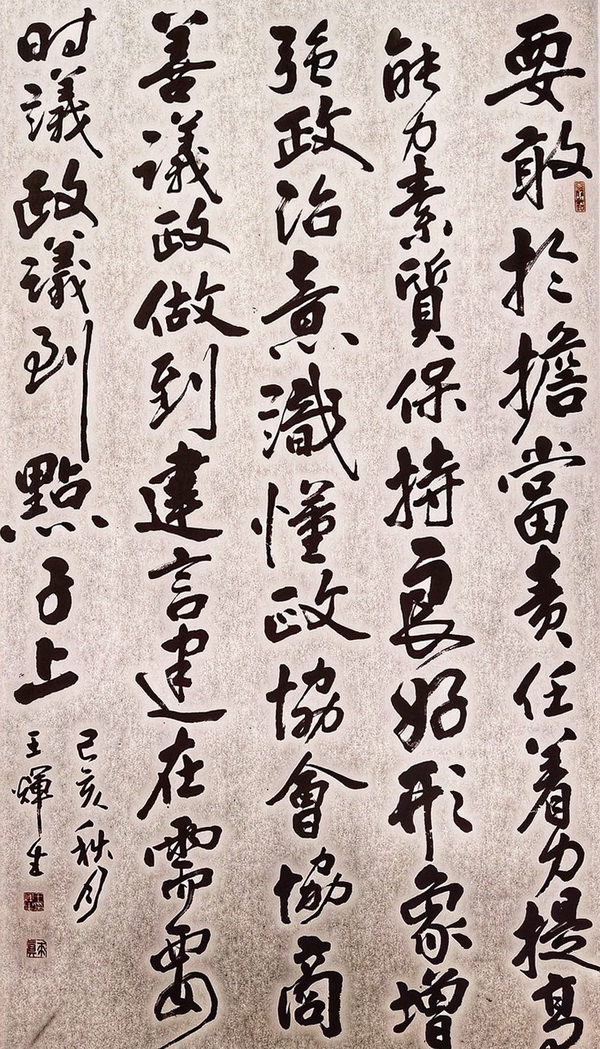 要敢於擔當責任着力提高
能力素質保持良好形象增
强政治意識懂政協會協商
善議政做到建言建在需要
时議政議到點子上
己亥秋月
王輝生